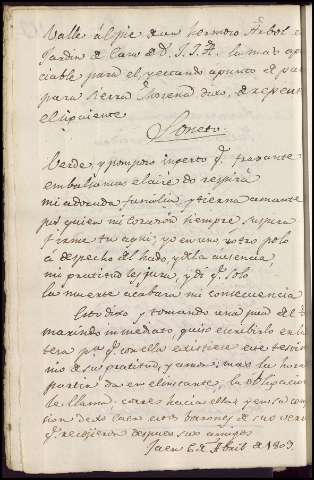 Valle al pie de un hermoso Arbol el
Jardin de Casa de D. J. J. R. la mas apre
ciable para el, y estando a punto de par
para Sierra Morena dixo de repente
el siguiente
Soneto.
Verde, y pomposo inserto q.e fragante
embalsamas el aire do respira
mi adorada familia, y tierna amante
por quien mi corazon siempre suspira
firme tu aqui; yo en uno, y otro polo
a despecho del hado, y de la ausencia,
mi gratitud te jura, y di q.e solo
la muerte acabará mi consecuencia
Esto dixo y tomando una del
inmediato, quiso escribirlo en la
p.a q.e con ella existiese este testimo
nio de su gratitud, y amor; mas la hora
partir da en el instante, la obligacion
le llama corre hacia ellas y en su
sion dexo caer estos borrones de sus versos
q.e recojieron despues sus amigos
Jaen 6 de Abril de 1809.